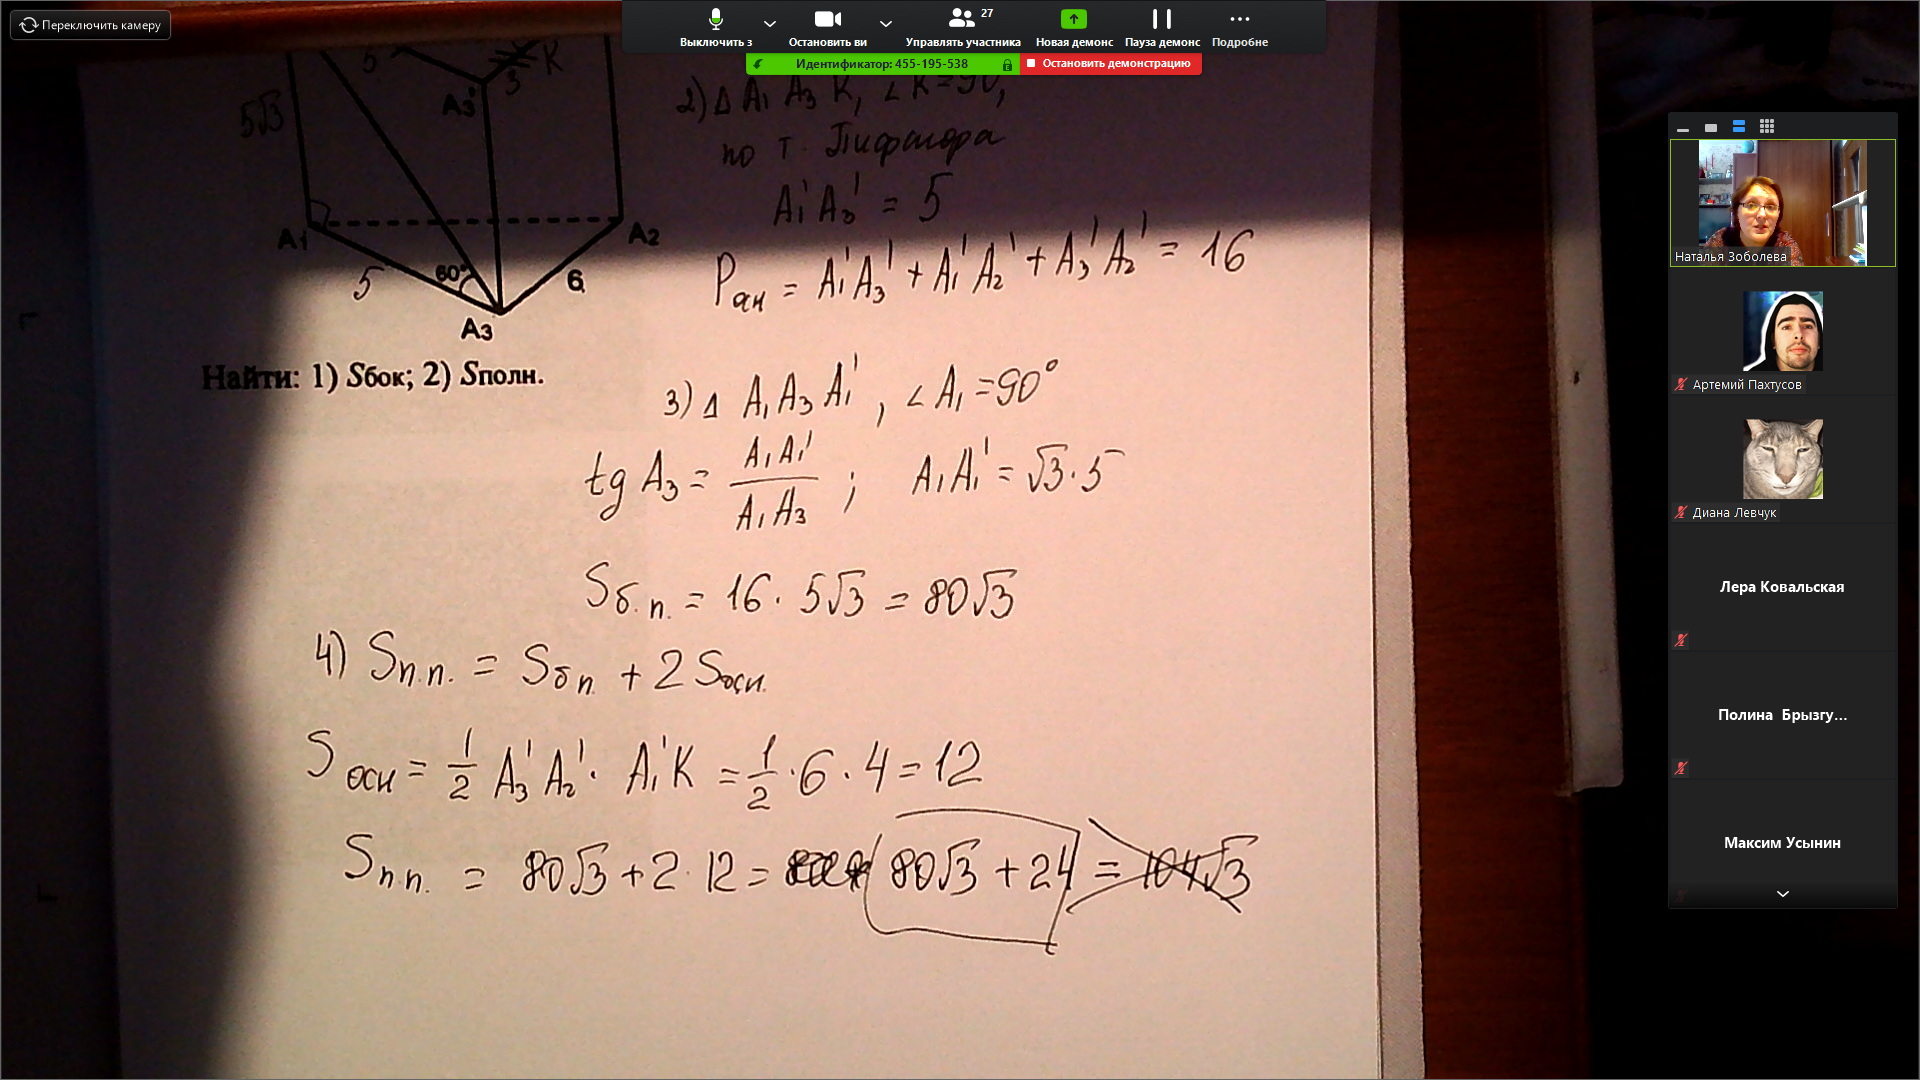 Переключить камеру
27
Выключить з
Остановить ви
Управлять участника
Новая демонс
Пауза демонс
Подробне
Идентификатор: 455-195-538
Остановить демонстрацию
5
K
3
A3'
5√3
A1
A2
5
60°
6
A3
Найти: 1) Sбок; 2) Sполн.
2) Δ A₁ A₃ K, ∠K=90,
по т. Пифагора
A₁'A₃' = 5
Pосн = A₁'A₃' + A₁'A₂' + A₃'A₂' = 16
3) Δ A₁A₃A₁', ∠A₁=90°
tg A₃ = A₁A₁' / A₁A₃ ; A₁A₁' = √3·5
Sб.п. = 16·5√3 = 80√3
4) Sп.п. = Sбп. + 2Sосн.
Sосн = 1/2 A₃'A₂'· A₁'K = 1/2·6·4 = 12
Sп.п. = 80√3 + 2·12 = 80√3 + 24 = 104√3
Наталья Зоболева
Артемий Пахтусов
Диана Левчук
Лера Ковальская
Полина Брызгу...
Максим Усынин